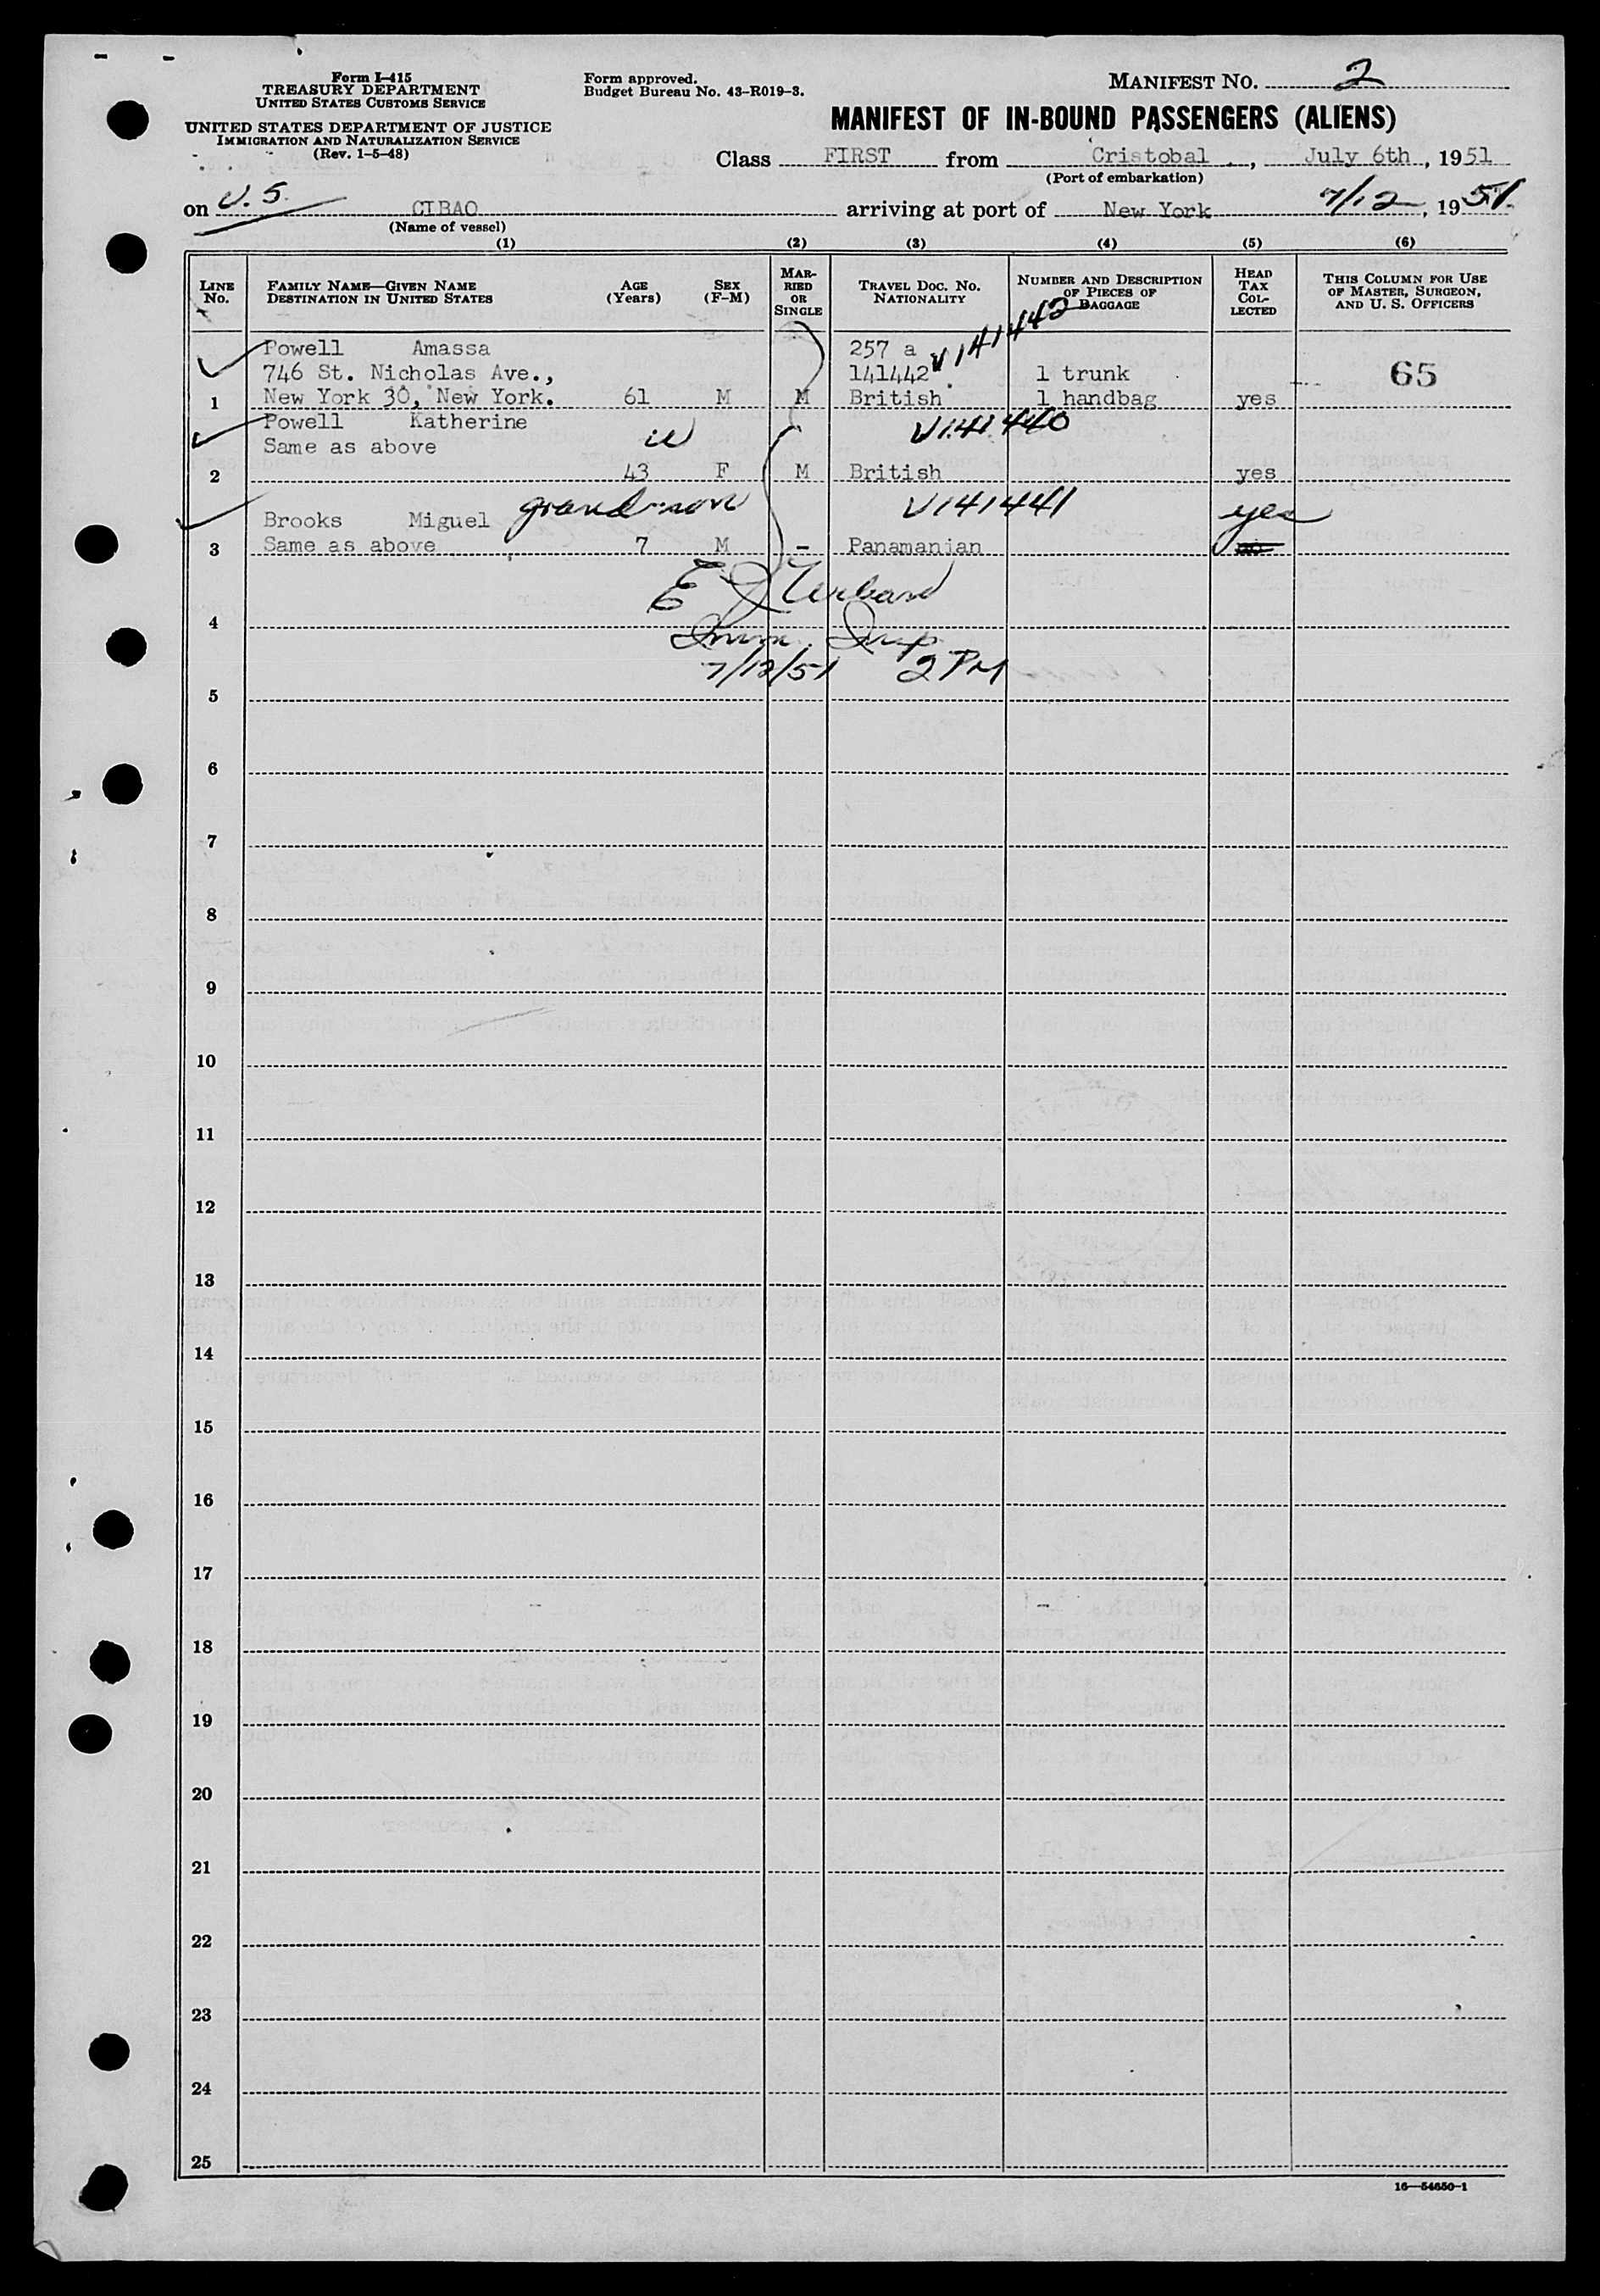 Form I-415
TREASURY DEPARTMENT
UNITED STATES CUSTOMS SERVICE
UNITED STATES DEPARTMENT OF JUSTICE
IMMIGRATION AND NATURALIZATION SERVICE
(Rev. 1-5-48)
Form approved.
Budget Bureau No. 43-R019-3.
MANIFEST NO. 2
MANIFEST OF IN-BOUND PASSENGERS (ALIENS)
Class FIRST from Cristobal, July 6th, 1951
(Port of embarkation)
on U.S. CIBAO arriving at port of New York 7/12, 1951.
(Name of vessel)
(1) (2) (3) (4) (5) (6)
LINE No. FAMILY NAME—GIVEN NAME DESTINATION IN UNITED STATES AGE (Years) SEX (F-M) MARRIED OR SINGLE TRAVEL DOC. NO. NATIONALITY NUMBER AND DESCRIPTION OF PIECES OF BAGGAGE HEAD TAX COLLECTED THIS COLUMN FOR USE OF MASTER, SURGEON, AND U. S. OFFICERS
Powell Amassa 257 a V141442
746 St. Nicholas Ave., 141442 1 trunk 65
1 New York 30, New York. 61 M M British 1 handbag yes
Powell Katherine V141440
Same as above
2 43 F M British yes
Brooks Miguel grandson V141441 yes
3 Same as above 7 M - Panamanian
E J Urban
4
Imm. Insp
7/12/51 2 PM
5
6
7
8
9
10
11
12
13
14
15
16
17
18
19
20
21
22
23
24
25
16—54650-1